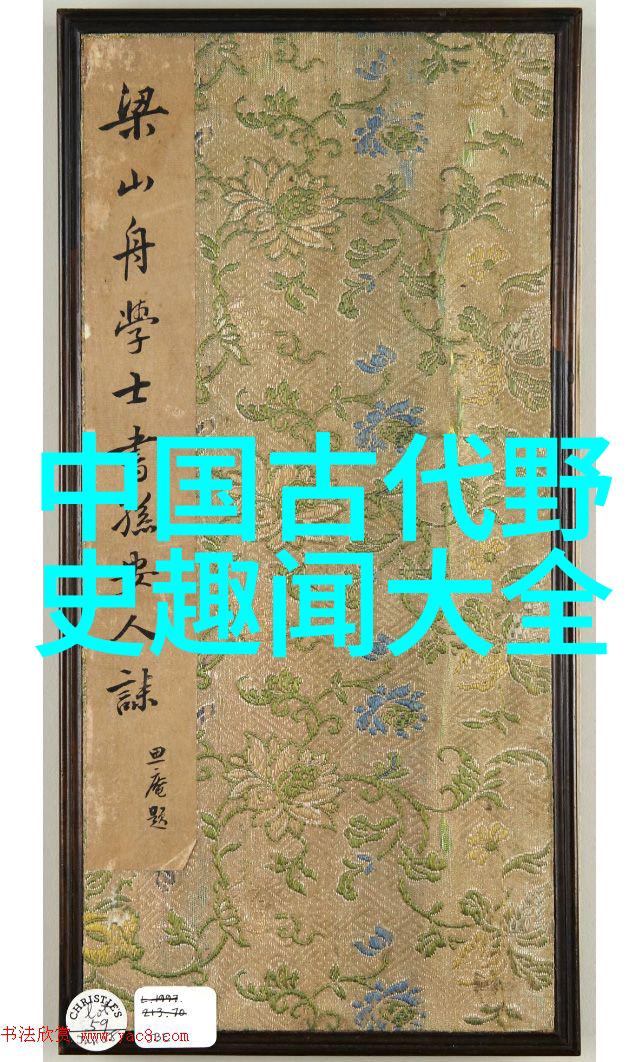 梁山舟學士書孫安人誄
中国古代野
史趣闻大全
CHRISTIE'S
lot
59
L.1997.
213.70
书法欣赏 www.yac8.com